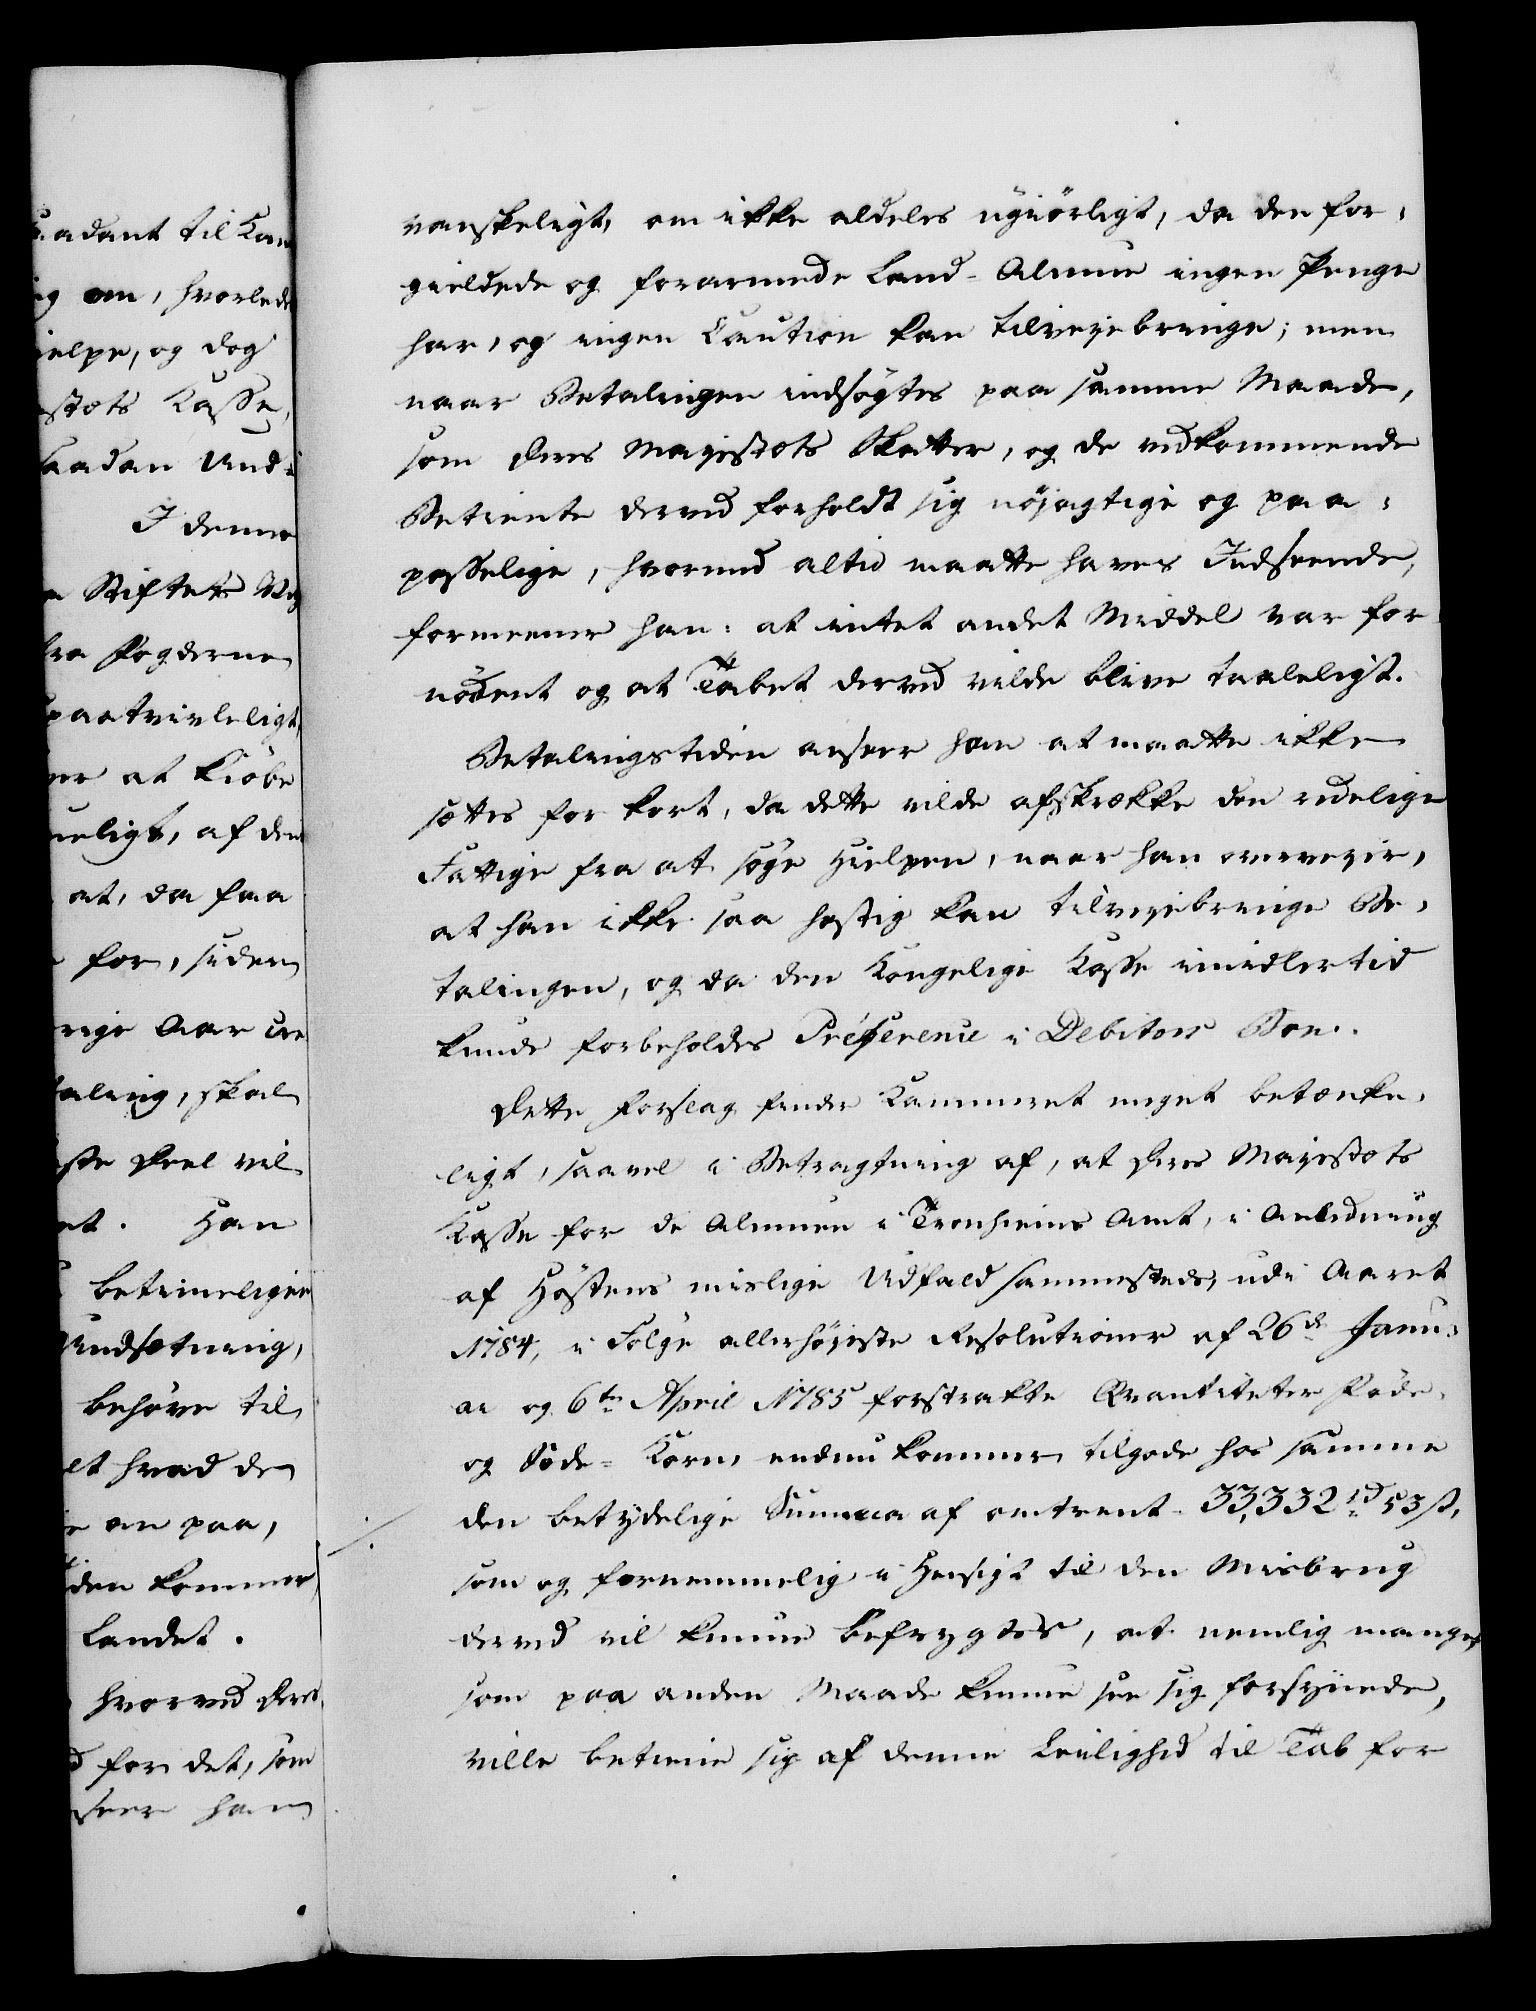 aadant til Kam
ig om, hvorlede
ielpe, og dog
estæts Kasse,
saadan Und-
I denne
Stiftets
fra Fogderne
paatvivleligt,
er at kiöbe
meligt, af den
at, da faa
for, siden
rige Aar
taling, skal
ste Deel vil
et. Han
betimeligen
Undsætning,
behöve til
let hvad de
om paa,
den kommer,
Landet.
hvorved Der
for det, som
seer han
vanskeligt, om ikke aldeles ugiörligt, da den for-
gieldede og forarmede Land-Almue ingen Penge
har, og ingen Caution kan tilvejebringe; men
naar Betalingen indsögtes paa samme Maade,
som Deres Majestæts Skatter, og de vedkommende
Betiente derved forholdt sig nöjagtige og paa-
passelige, hvormed altid maatte haves Indseende,
formeener han: at intet andet Middel var for
nödent og at Tabet derved vilde blive taaleligt.
Betalingstiden anseer han at maatte ikke
sættes for kort, da dette vilde afskrække den redelige
Fattige fra at söge Hielpen, naar han overvejer,
at han ikke saa hastig kan tilvejebringe Be-
talingen, og da den Kongelige Kasse imidlertid
kunde forbeholdes Préference i Debitors Boe.
Dette Forslag finder Kammeret meget betænke-
ligt, saavel i Betragtning af, at Deres Majestæts
Kasse for de Almuen i Tronhiems Amt, i Anledning
af Höstens mislige Udfald sammesteds, udi Aaret
1784, i Fölge allerhöjeste Resolutioner af 26de Janu-
ar og 6te April 1785 forstrakte Qvantiteter Föde-
og Sæde-Korn, endnu kommer tilgode hos samme
den betydelige Summa af omtrent 33,332 rd 53 s,
som og fornemmelig i Hensigt til den Misbrug
derved vil kunne befrygtes, at nemlig mange
som paa anden Maade kunne see sig forsynede,
ville betiene sig af denne Leilighed til Tab for